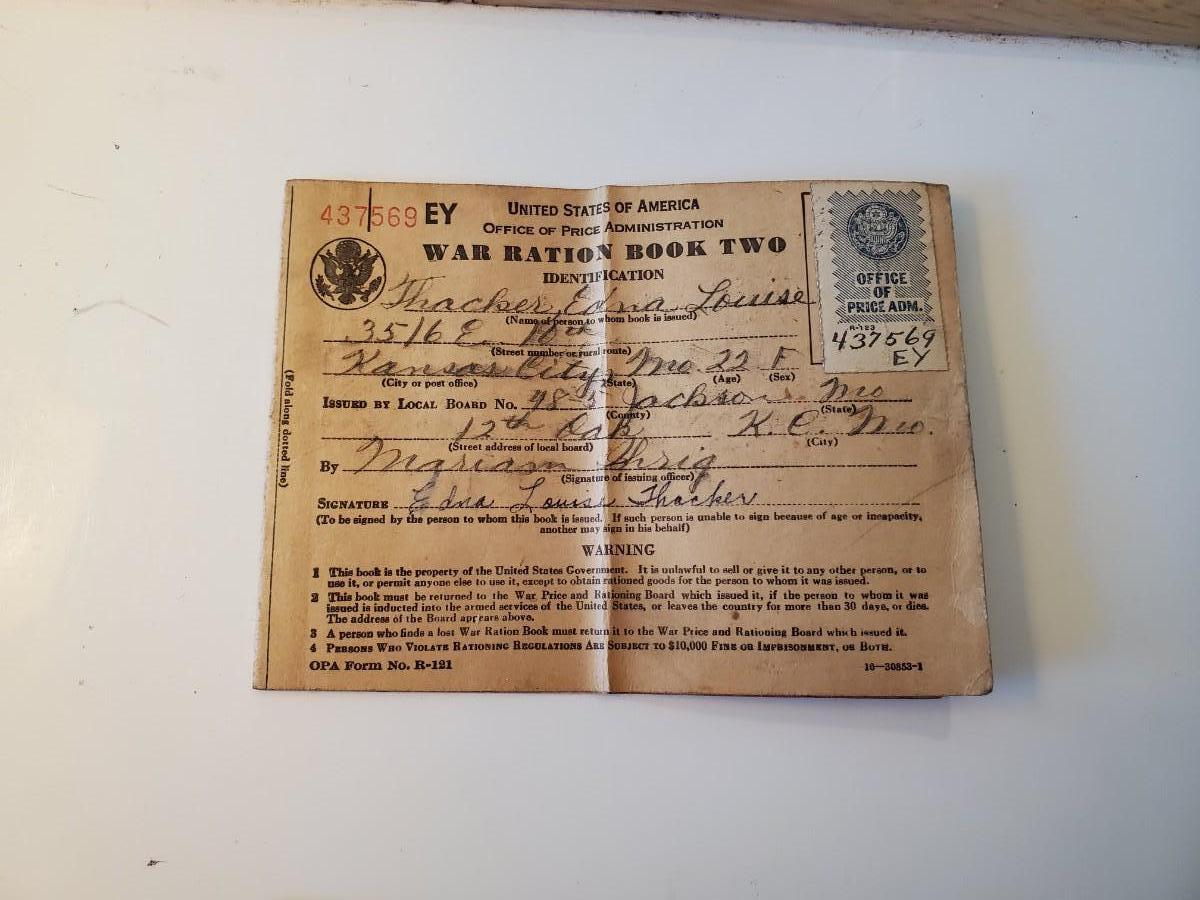 437569 EY
UNITED STATES OF AMERICA
OFFICE OF PRICE ADMINISTRATION
WAR RATION BOOK TWO
IDENTIFICATION
OFFICE
OF
PRICE ADM.
R-123
437569
EY
Thacker, Edna Louise
(Name of person to whom book is issued)
3516 E. 10th
(Street number or rural route)
Kansas City, Mo. 22 F
(City or post office) (State) (Age) (Sex)
ISSUED BY LOCAL BOARD NO. 48 Jackson Mo
(County) (State)
12th Oak K. C. Mo.
(Street address of local board) (City)
By Mariam
(Signature of issuing officer)
SIGNATURE Edna Louise Thacker
(To be signed by the person to whom this book is issued. If such person is unable to sign because of age or incapacity,
another may sign in his behalf)
WARNING
1 This book is the property of the United States Government. It is unlawful to sell or give it to any other person, or to
use it, or permit anyone else to use it, except to obtain rationed goods for the person to whom it was issued.
2 This book must be returned to the War Price and Rationing Board which issued it, if the person to whom it was
issued is inducted into the armed services of the United States, or leaves the country for more than 30 days, or dies.
The address of the Board appears above.
3 A person who finds a lost War Ration Book must return it to the War Price and Rationing Board which issued it.
4 PERSONS WHO VIOLATE RATIONING REGULATIONS ARE SUBJECT TO $10,000 FINE OR IMPRISONMENT, OR BOTH.
OPA Form No. R-121 16—30853-1
(Fold along dotted line)